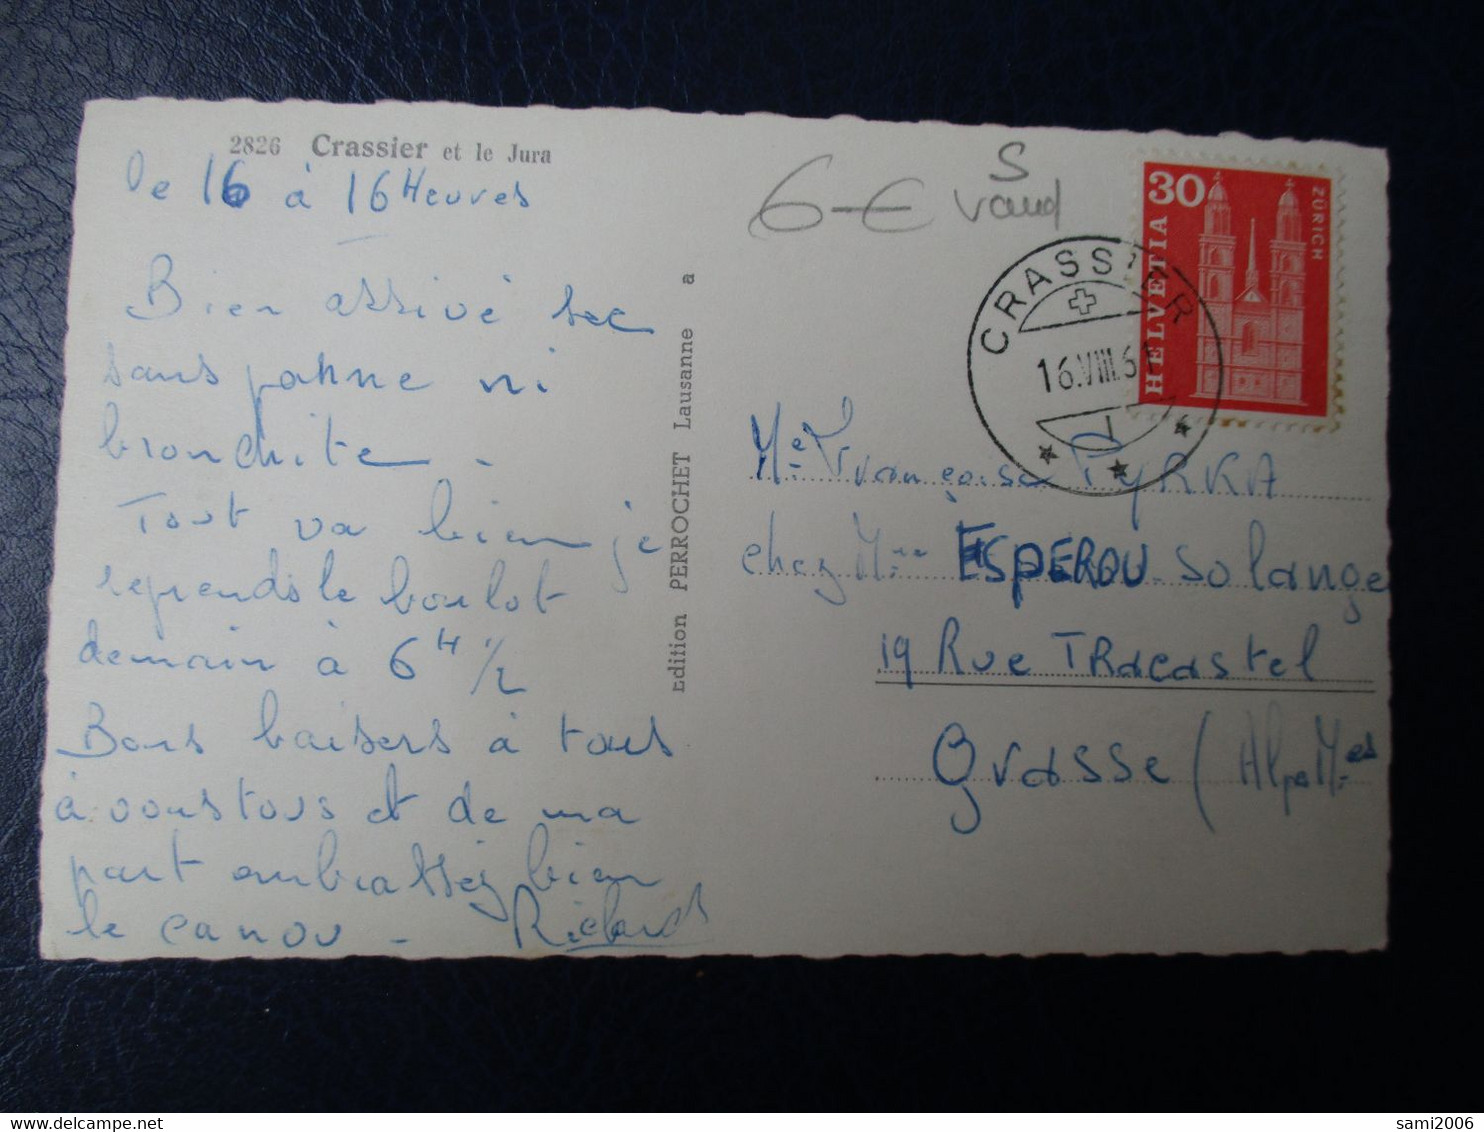 2826 Crassier et le Jura
le 16 à 16 Heures
Bien arrivé sec
sans panne ni
bronchite -
Tout va bien je
reprends le boulot
demain à 6 H 1/2
Bons baisers à tous
à vous tous et de ma
part embrassez bien
le canou - Richard
Edition PERROCHET Lausanne a
6-€
S
Vaud
CRASSIER
16.VIII.6
HELVETIA
30
ZÜRICH
Me Françoise PYRKA
chez Mme ESPEROU Solange
19 Rue TRacastel
Grasse (Alpes Mes
sami2006